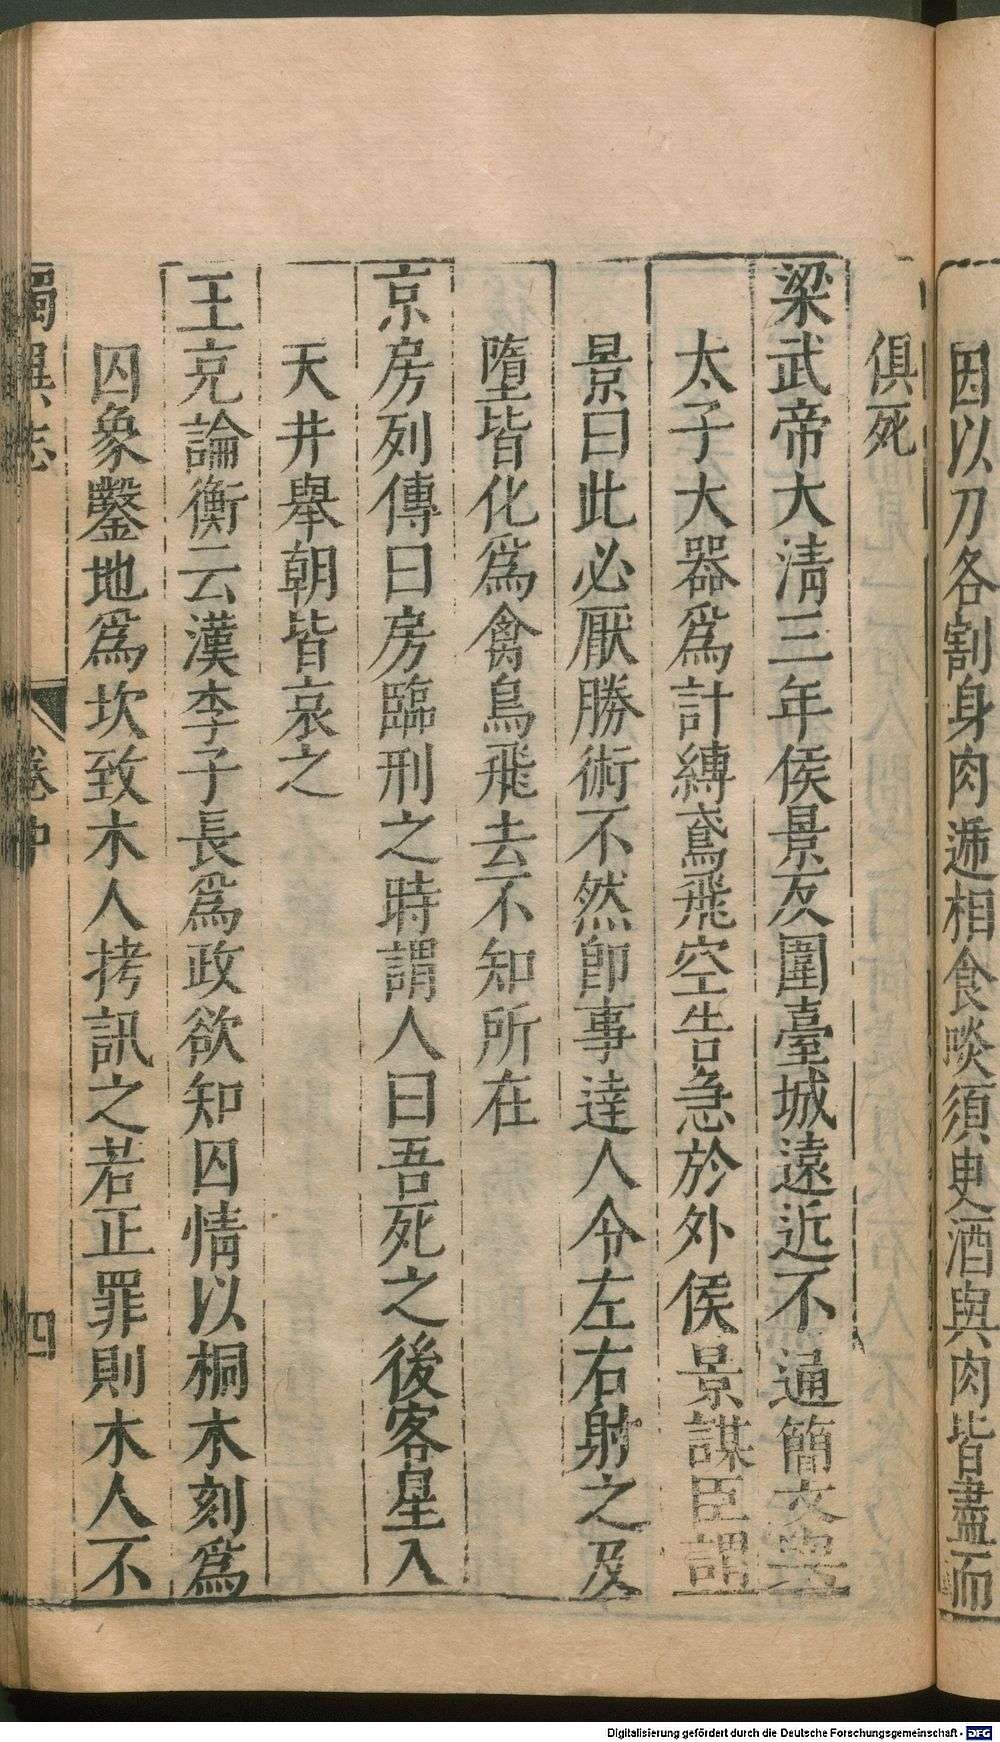 因以刀各割身肉遞相食啖須臾酒與肉皆盡而
俱死
梁武帝大清三年侯景反圍臺城遠近不通簡文與
太子大器爲計縛鳶飛空告急於外侯景謀臣謂
景曰此必厭勝術不然卽事達人令左右射之及
墮皆化爲禽鳥飛去不知所在
京房列傳曰房臨刑之時謂人曰吾死之後客星入
天井舉朝皆哀之
王充論衡云漢李子長爲政欲知囚情以桐木刻爲
囚象鑿地爲坎致木人拷訊之若正罪則木人不
獨異志 卷中 四
Digitalisierung gefördert durch die Deutsche Forschungsgemeinschaft - DFG